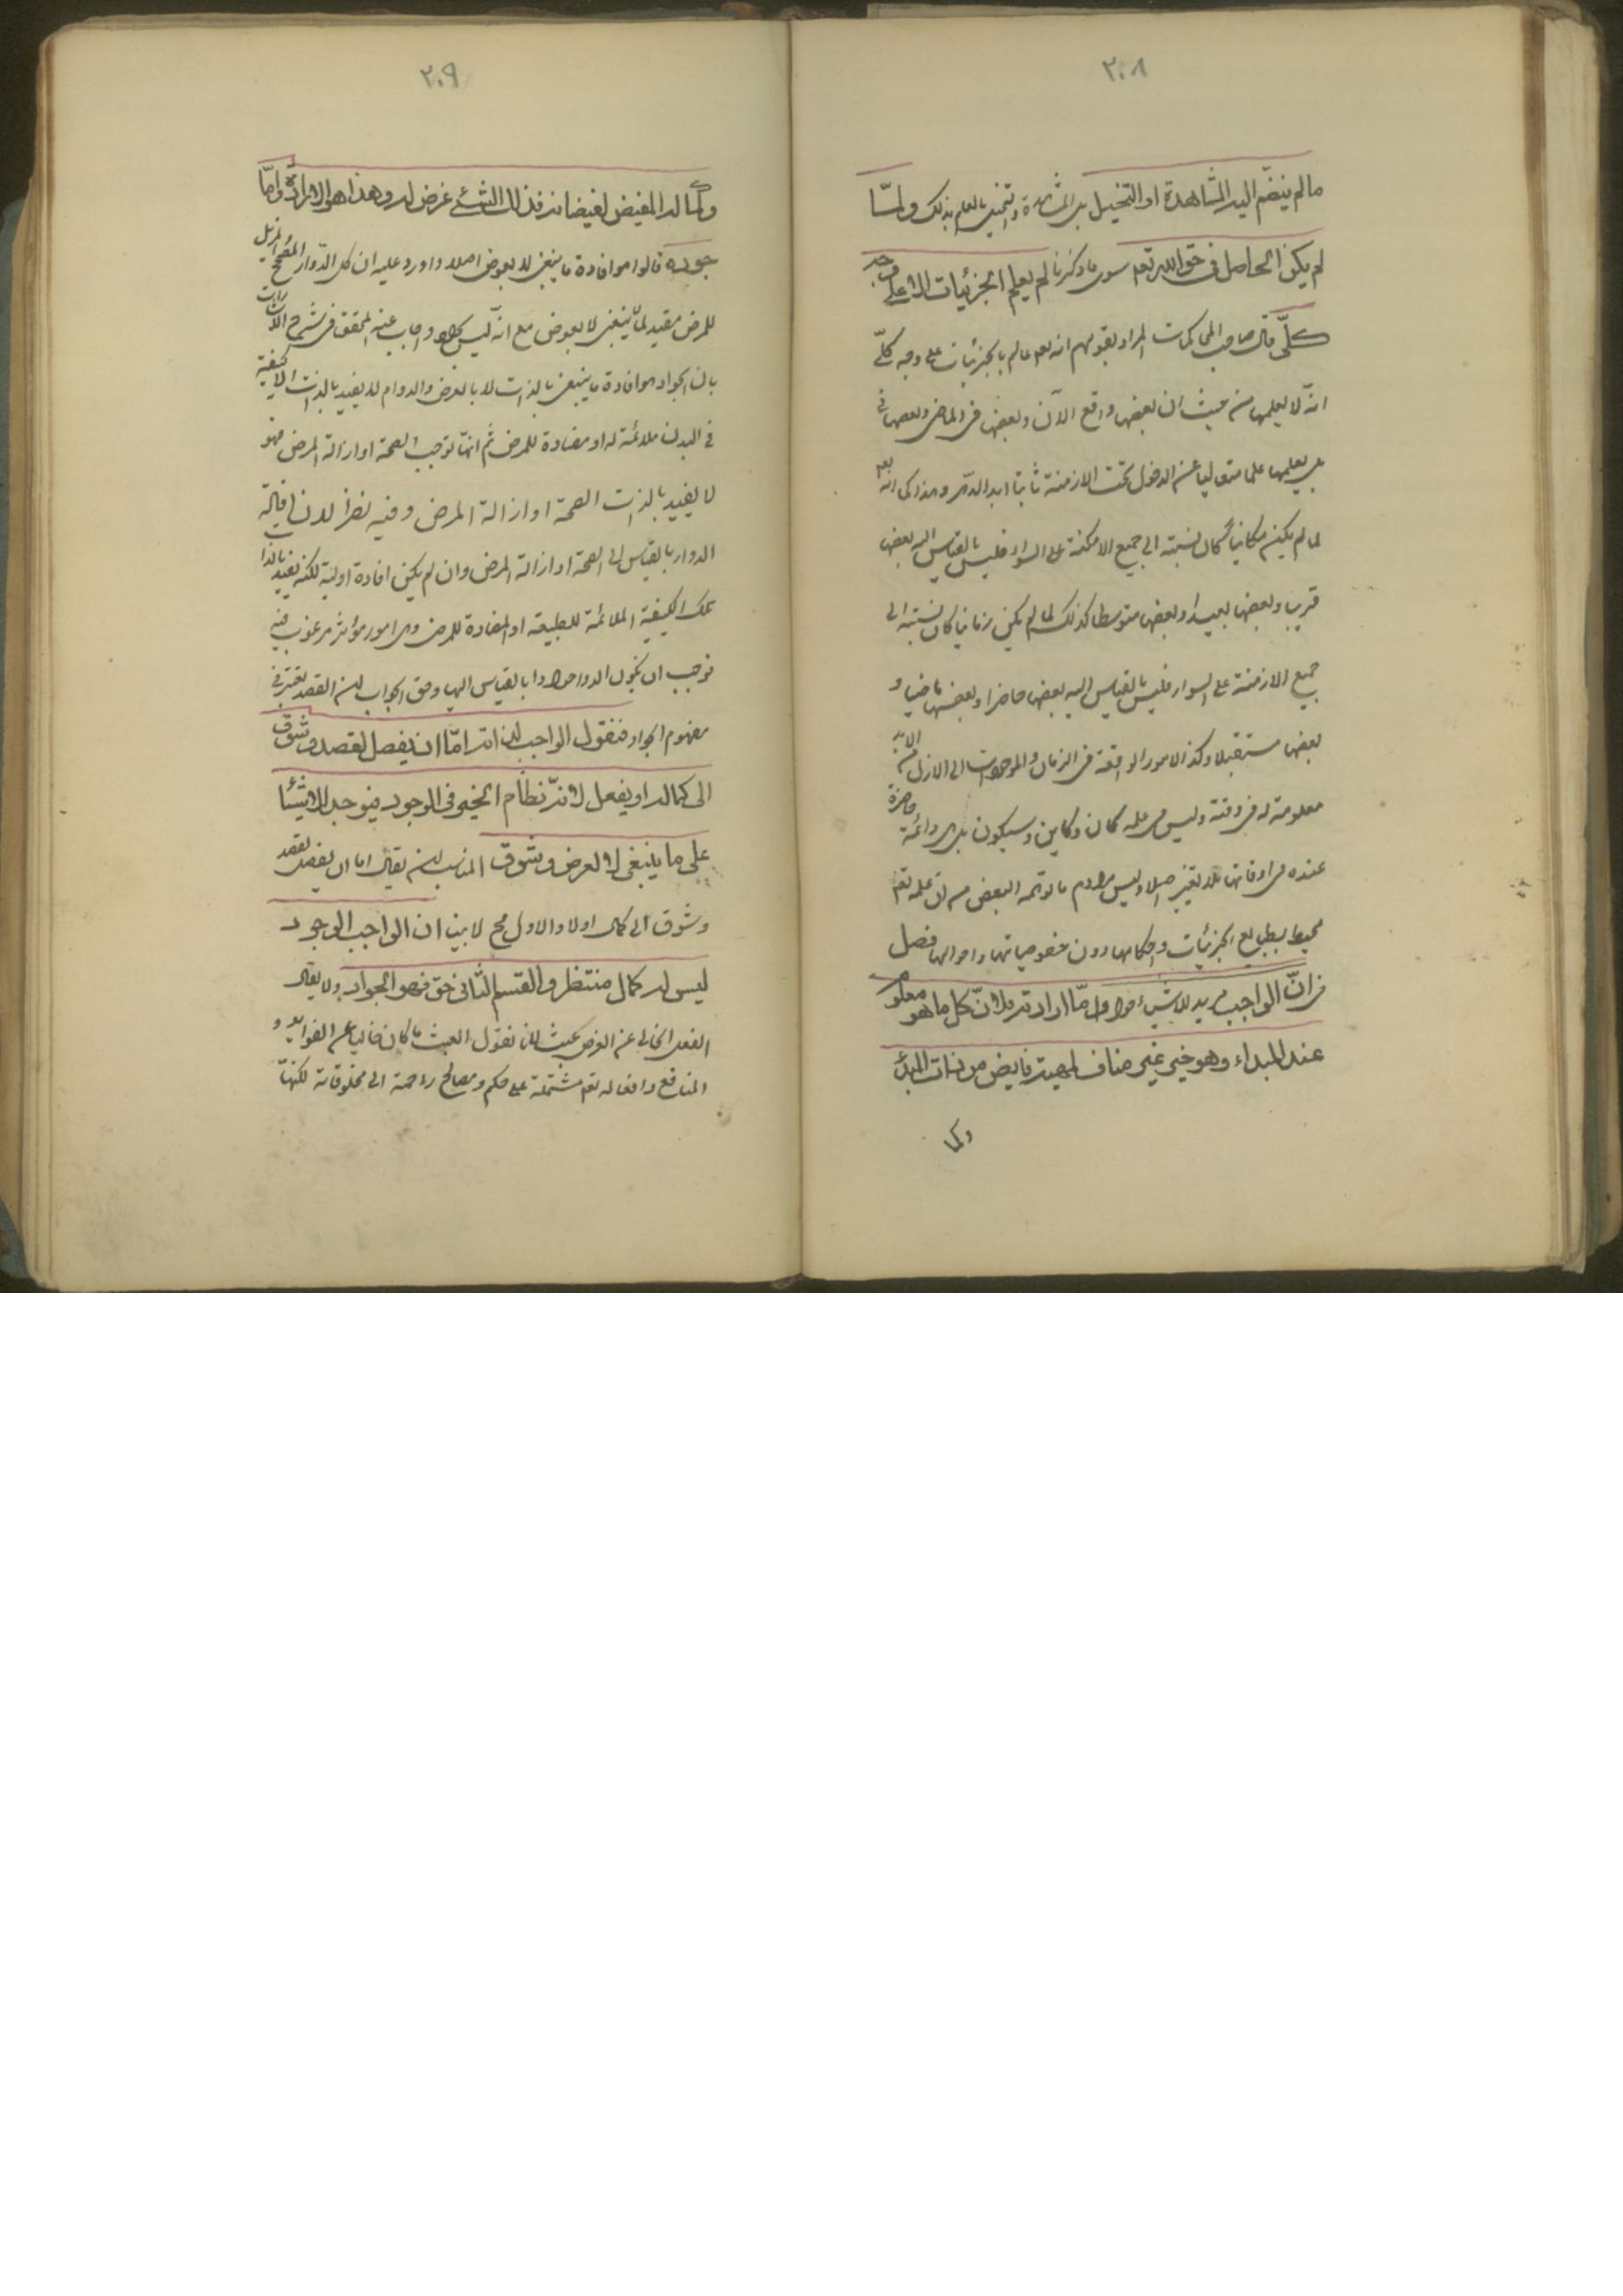 ٢٠٨
ما لم ينضم اليه المشاهدة او التخيل بل المشاهدة والتخيل بالعلم بذلك ولما
لم يكن الحاصل فى حق الله تعم سوى ما ذكرنا لم يعلم الجزئيات الا على وجه
كلّى قال صاحب المحاكمات المراد بقولهم انه تعم عالم بالجزئيات على وجه كلّى
انه لا يعلمها من حيث ان بعضها واقع الآن وبعضها فى الماضى وبعضها فى
بل يعلمها علما متعاليا عن الدخول تحت الازمنة ثابتا ابد الدهر وهذا كما انه تعم
لما لم يكن مكانيا كان نسبته الى جميع الامكنة على السواء فليس بالقياس اليه بعضها
قريبا وبعضها بعيدا وبعضها متوسطا كذلك لما لم يكن زمانيا كان نسبته الى
جميع الازمنة على السواء فليس بالقياس اليه بعضها حاضرا وبعضها ماضيا و
بعضها مستقبلا وكذا الامور الواقعة فى الزمان والموجودات من الازل الى الابد
معلومة له فى وقته وليس فى علمه كان وكاين وسيكون بل هى دائمة حاضرة
عنده فى اوقاتها بلا تغير اصلا وليس مرادهم ما توهمه البعض من ان علمه تعم
محيط بطبايع الجزئيات واحكامها دون خصوصياتها واحوالها فصل
فى ان الواجب مريد للاشياء وجواد اما ارادته فلان كل ما هو معلوم
عند المبداء وهو خير غير مناف لمهيته فايض من ذات المبدأ
وكما
٢٠٩
وكماله المفيض لفيضانه فذلك الشئ غرض له وهذا هو الارادة واما
جوده قالوا هو افادة ما ينبغى لا لعوض اصلا واورد عليه ان كل الدواء المصحح والمزيل
للمرض مفيد لما ينبغى لا لعوض مع انه ليس بجواد واجاب عنه المحقق فى شرح الاشارات
بان الجواد هو افادة ما ينبغى بالذات لا بالعرض والدواء لا يفيد بالذات الا كيفية
فى البدن ملائمة له او مضادة للمرض ثم انها توجب الصحة او ازالة المرض فهو
لا يفيد بالذات الصحة او ازالة المرض وفيه نظر لان افادة
الدواء بالقياس الى الصحة او ازالة المرض وان لم يكن افادة اولية لكنه يفيد بالذات
تلك الكيفية الملائمة للطبيعة او المضادة للمرض وهى امور مؤثرة مرغوب فيه
فوجب ان يكون الدواء جوادا بالقياس اليها وحق الجواب ان القصد معتبر فى
مفهوم الجواد فنقول الواجب لذاته اما ان يفعل لقصد وشوق
الى كماله او يفعل لانه نظام الخير فى الوجود فيوجد الاشيئا
على ما ينبغى لا لغرض وشوق المناسب ان يقال اما ان يفعل لقصد
وشوق الى كمال اولا والاول مح لا بينا ان الواجب الوجود
ليس له كمال منتظر والقسم الثانى حق فهو الجواد ولا يقال
الفعل الخالى عن الغرض عبث لانا نقول العبث ما كان خاليا عن الفوايد و
المنافع وافعاله تعم مشتملة على حكم ومصالح راجعة الى مخلوقاته لكنها